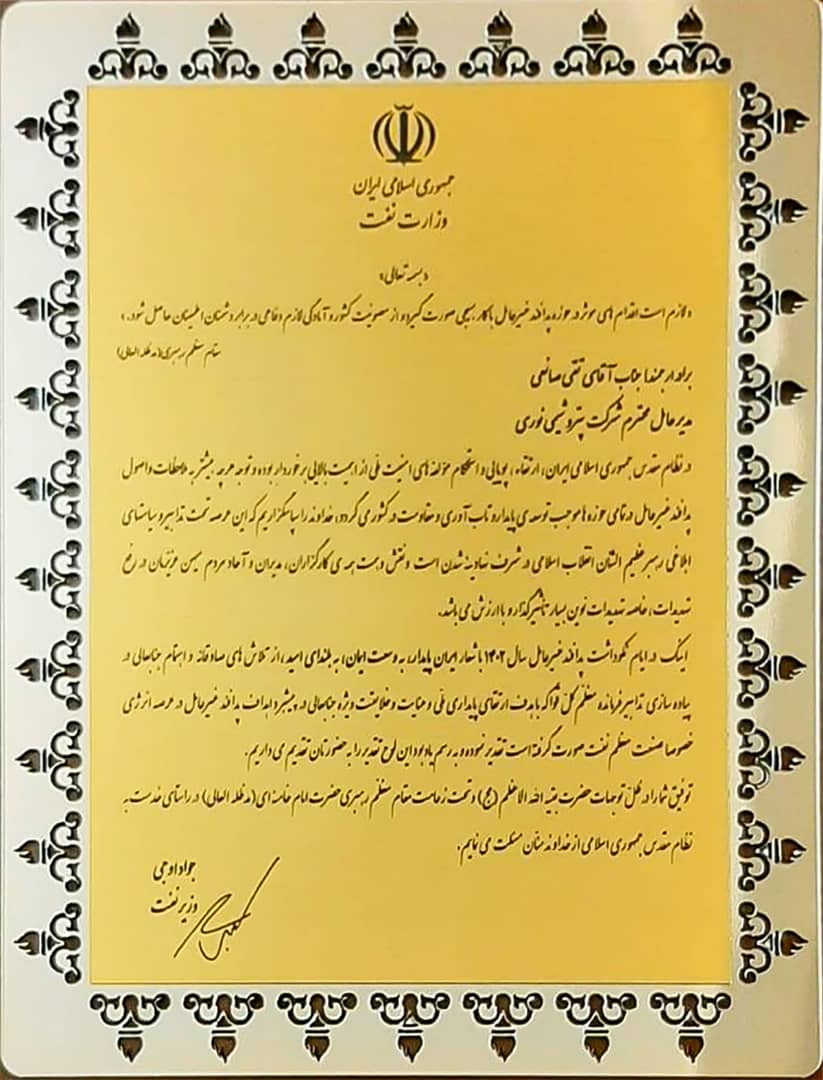 جمهوری اسلامی ایران
وزارت نفت
«بسمه تعالی»
«لازم است اقدام های موثر در حوزه پدافند غیرعامل با کار بسیجی صورت گیرد و از مصونیت کشور و آمادگی لازم دفاعی در برابر دشمنان اطمینان حاصل شود.»
مقام معظم رهبری (مدظله العالی)
برادر ارجمند جناب آقای تقی صانعی
مدیرعامل محترم شرکت پتروشیمی نوری
در نظام مقدس جمهوری اسلامی ایران، ارتقاء، پویایی و استحکام مؤلفه های امنیت ملی از اهمیت بالایی برخوردار بوده و توجه هرچه بیشتر به ملاحظات و اصول
پدافند غیرعامل در تمامی حوزه ها موجب توسعه ی پایدار و تاب آوری و مقاومت در کشور می گردد، خداوند را سپاسگزاریم که این عرصه تحت تدابیر و سیاستهای
ابلاغی رهبر عظیم الشان انقلاب اسلامی در شرف نهادینه شدن است و نقش و همت همه ی کارگزاران، مدیران و آحاد مردم میهن عزیزمان در رفع
تهدیدات، خاصه تهدیدات نوین بسیار تأثیرگذار و با ارزش می باشد.
اینک در ایام نکوداشت پدافند غیرعامل سال ۱۴۰۲ با شعار ایران پایدار، به وسعت ایمان، به بلندای امید، از تلاش های صادقانه و اهتمام جنابعالی در
پیاده سازی تدابیر فرمانده معظم کل قوا که با هدف ارتقای پایداری ملی و عنایت و خلاقیت ویژه جنابعالی در پیشبرد اهداف پدافند غیرعامل در عرصه انرژی
خصوصا صنعت معظم نفت صورت گرفته است تقدیر نموده و به رسم یادبود این لوح تقدیر را به حضورتان تقدیم می داریم.
توفیق شما را در ظل توجهات حضرت بقیه الله الاعظم (عج) و تحت زعامت مقام معظم رهبری حضرت امام خامنه ای (مدظله العالی) در راستای خدمت به
نظام مقدس جمهوری اسلامی از خداوند منّان مسئلت می نمایم.
جواد اوجی
وزیر نفت